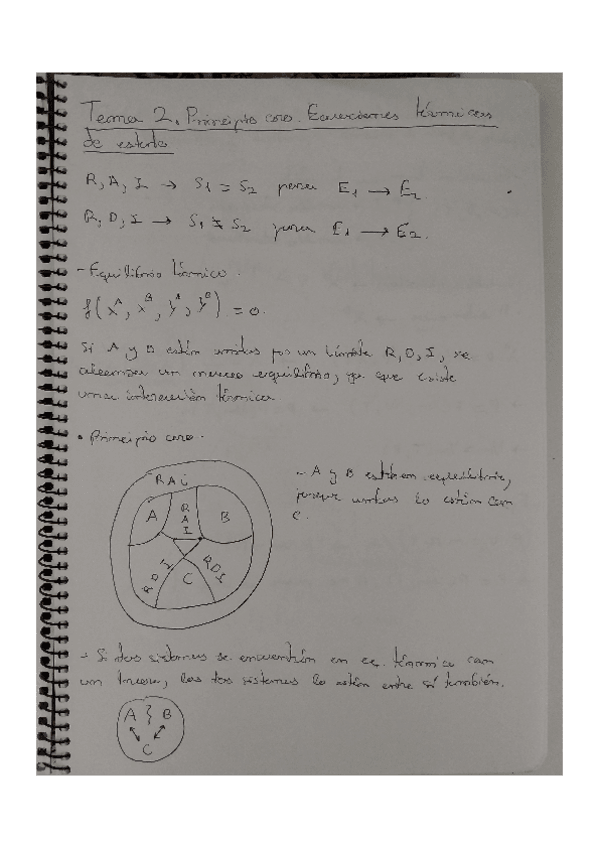 Tema 2. Principio cero. Ecuaciones térmicas
de estado
R, A, I → S₁ = S₂ para E₁ → E₂.
R, D, I → S₁ ≠ S₂ para E₁ → E₂.
- Equilibrio térmico.
f(x^A, x^B, y^A, y^B) = 0.
Si A y B están unidos por un límite R, D, I, se
alcanza un nuevo equilibrio, ya que existe
una interacción térmica.
• Principio cero.
RAI
A
R
A
I
B
RDI
C
RDI
→ A y B están equilibrio,
porque ambos lo están con
C.
→ Si dos sistemas se encuentran en eq. térmico con
un tercero, los dos sistemas lo están entre sí también.
A B
C